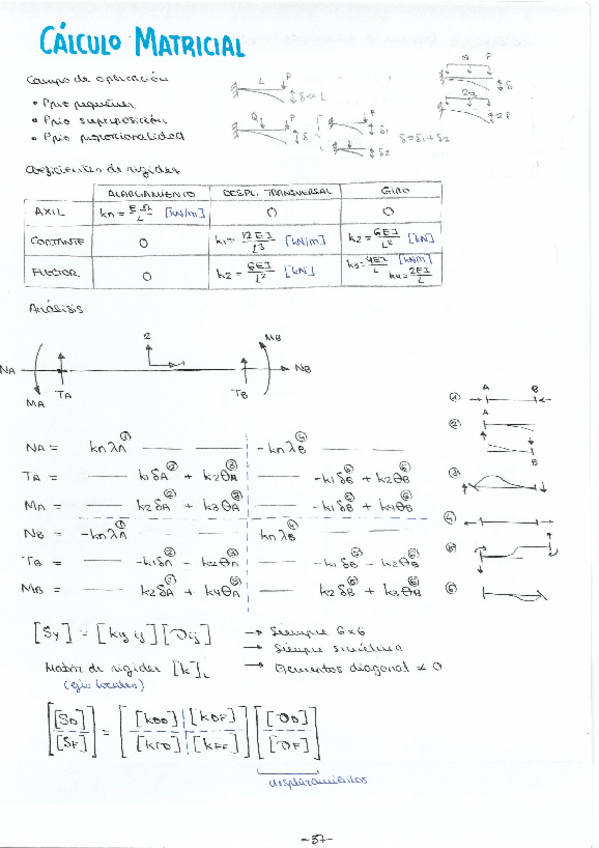 CÁLCULO MATRICIAL
Campo de aplicación
• Ppio pequeñez
• Ppio superposición
• Ppio proporcionalidad
L P δ<<L
Q P δ = P δ1 + δ2
δ=δ1+δ2
Q P δ
2q
Coeficientes de rigidez
ALARGAMIENTO DESPL. TRANSVERSAL GIRO
AXIL kn = E·Ω/L [kN/m] 0 0
CORTANTE 0 k1 = 12EI/L³ [kN/m] k2 = 6EI/L² [kN]
FLECTOR 0 k2 = 6EI/L² [kN] k3 = 4EI/L [kN/m] k4 = 2EI/L
Análisis
NA MA TA 2 TB MB NB
NA = knλA① — — -knλB④ — —
TA = — k1δA② + k2θA③ — -k1δB⑤ + k2θB⑥
MA = — k2δA② + k3θA③ — -k1δB⑤ + k4θB⑥
NB = -knλA① — — knλB④ — —
TB = — -k1δA② - k2θA③ — -k1δB⑤ - k2θB⑥
MB = — k2δA② + k4θA③ — k2δB⑤ + k3θB⑥
① A B
② A B
③
④
⑤
⑥
[Sy] = [kyij][Dij] → Siempre 6x6
→ Siempre simétrica
Matriz de rigidez [k]L → Elementos diagonal ≠ 0
(ejes locales)
[[SD] [SF]] = [[kDD] [kDF] [kFD] [kFF]] [[DD] [DF]]
desplazamientos
-37-